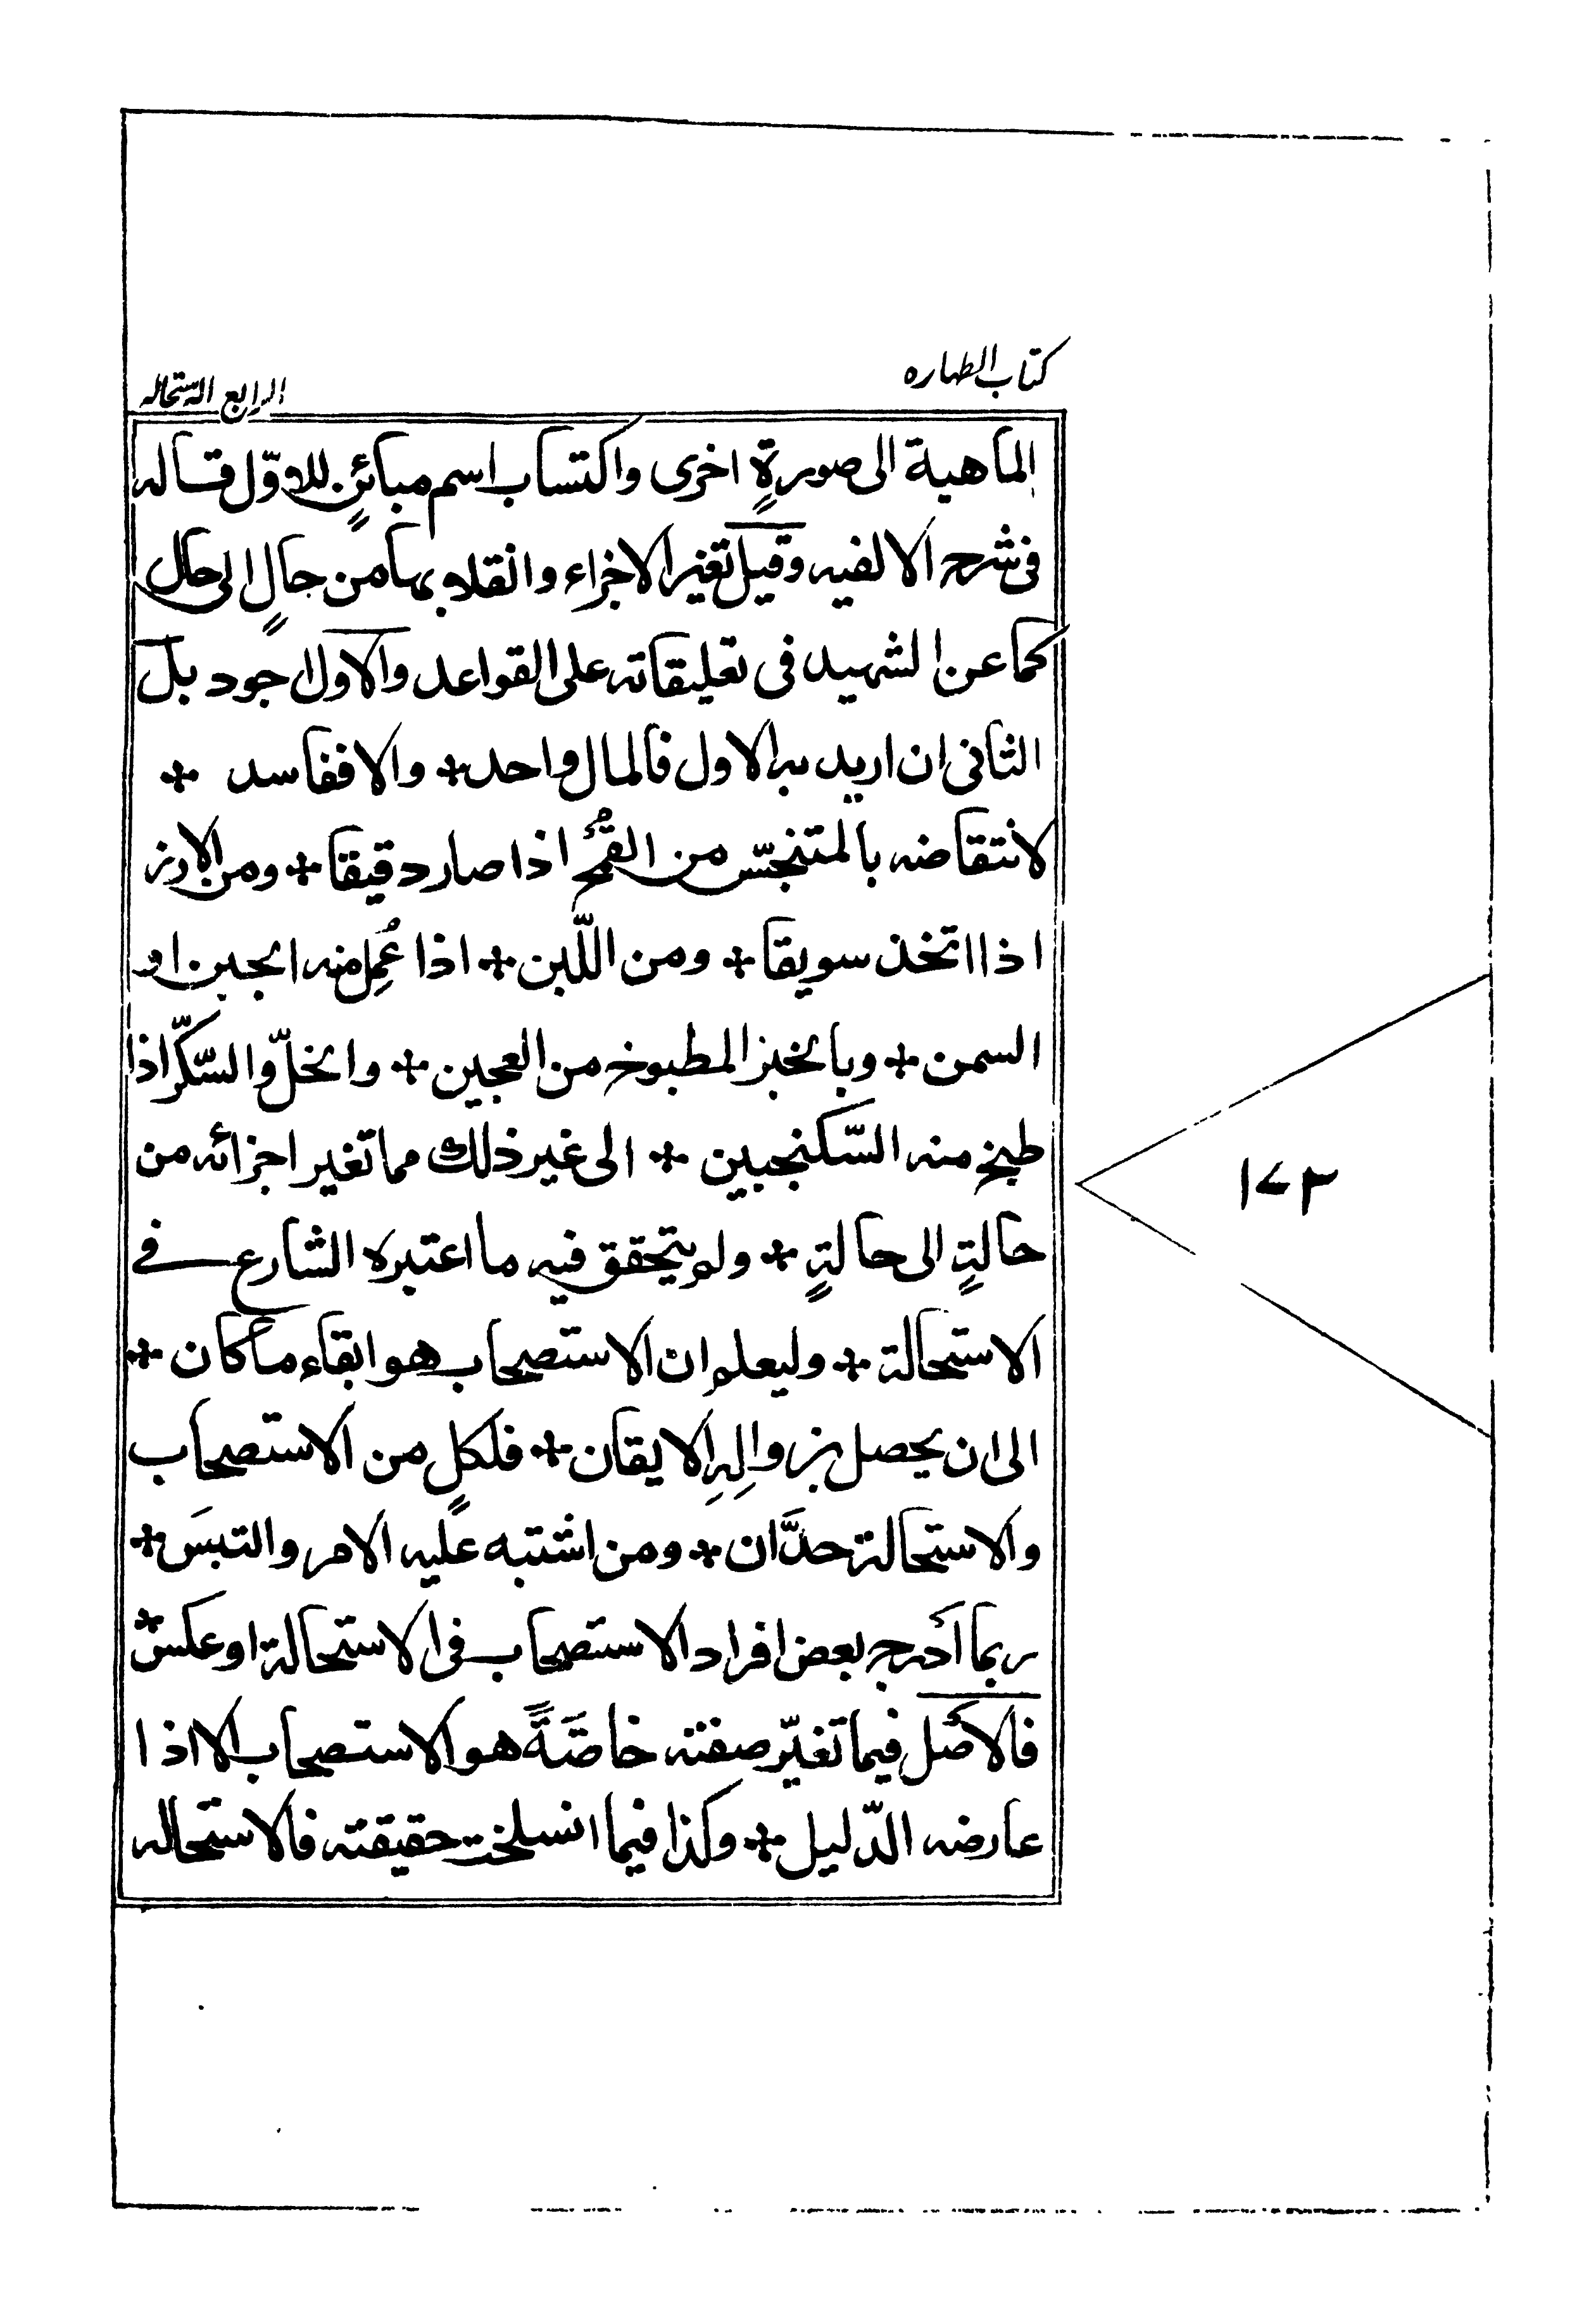 كتاب الطهاره
الرابع الاستحاله
الماهية الى صورةٍ اخرى واكتساب اسم مبائنٍ للاوّل قاله
فى شرح الالفيه وقيل تغير الاجزاء وانقلابها من حالٍ الى حال
كما عن الشهيد فى تعليقاته على القواعد والاول اجود بل
الثانى ان اريد به الاول فالمال واحد + والا ففاسد +
لانتقاضه بالمتنجّس من القمح اذا صار دقيقا + ومن الارز
اذا اتخذ سويقا + ومن اللّبن + اذا عُمِل منه الجبن او
السمن + وبالخبز المطبوخ من العجين + والخلّ والسّكّر اذا
طبخ منه السّكنجبين + الى غير ذلك مما تغير اجزائه من
حالةٍ الى حالةٍ + ولم يتحقق فيه ما اعتبره الشارع فے
الاستحالة + وليعلم ان الاستصحاب هو ابقاء ما كان +
الى ان يحصل بزوالِهِ الايقان + فلكلٍ من الاستصحاب
والاستحالة حدَّان + ومن اشتبه عليه الامر والتبسَ +
ربما أدرج بعض افراد الاستصحاب فى الاستحالة او عكسَ +
فالأصل فيما تغيّر صفته خاصَّةً هو الاستصحاب الا اذا
عارضه الدّليل + وكذا فيما انسلخت حقيقته فالاستحاله
١٧٣